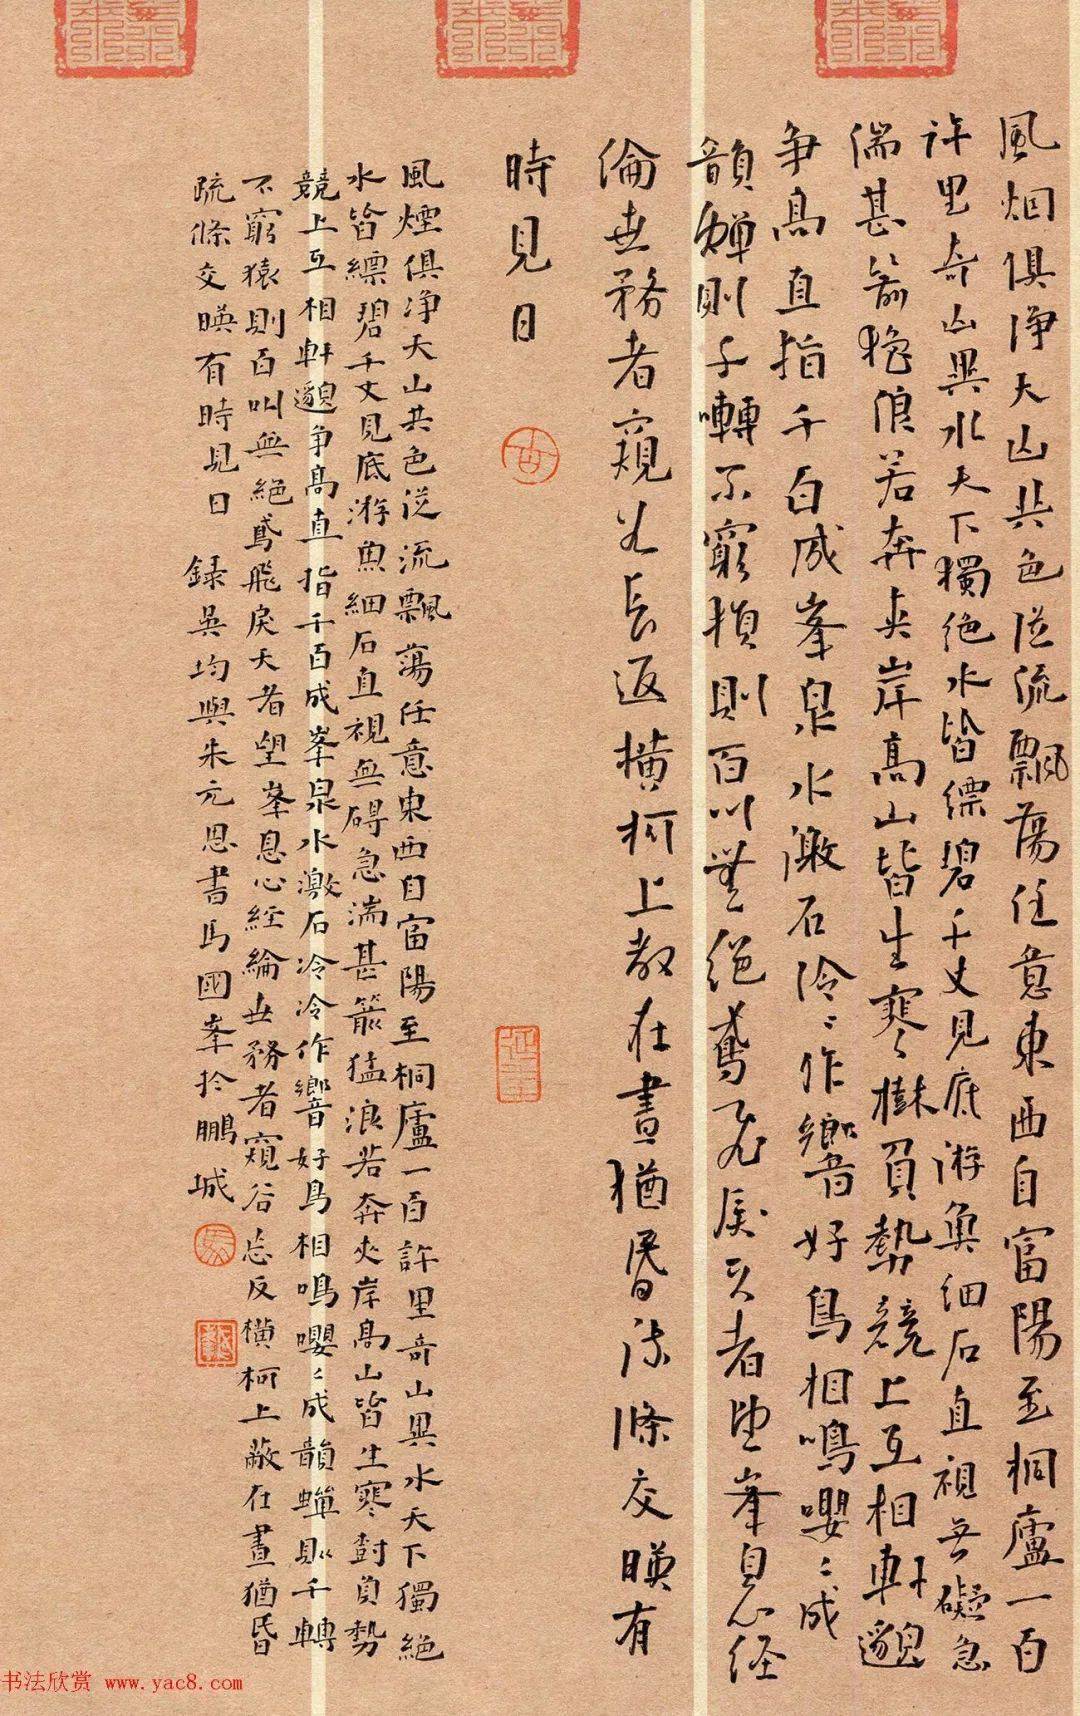 風烟俱淨天山共色從流飄蕩任意東西自富陽至桐廬一百
許里奇山異水天下獨絕水皆縹碧千丈見底游魚細石直視無礙急
湍甚箭猛浪若奔夾岸高山皆生寒樹負勢競上互相軒邈
爭高直指千百成峯泉水激石泠泠作響好鳥相鳴嚶嚶成
韻蟬則千囀不窮猿則百叫無絕鳶飛戾天者望峯息心經
綸世務者窺谷忘返橫柯上蔽在晝猶昏疏條交暎有
時見日
風煙俱淨天山共色從流飄蕩任意東西自富陽至桐廬一百許里奇山異水天下獨絕
水皆縹碧千丈見底游魚細石直視無碍急湍甚箭猛浪若奔夾岸高山皆生寒樹負勢
競上互相軒邈爭高直指千百成峯泉水激石冷冷作響好鳥相鳴嚶嚶成韻蟬則千轉
不窮猿則百叫無絕鳶飛戾天者望峯息心經綸世務者窺谷忘反橫柯上蔽在晝猶昏
疏條交暎有時見日 錄吳均與朱元思書馬國峯於鵬城
书法欣赏 www.yac8.com